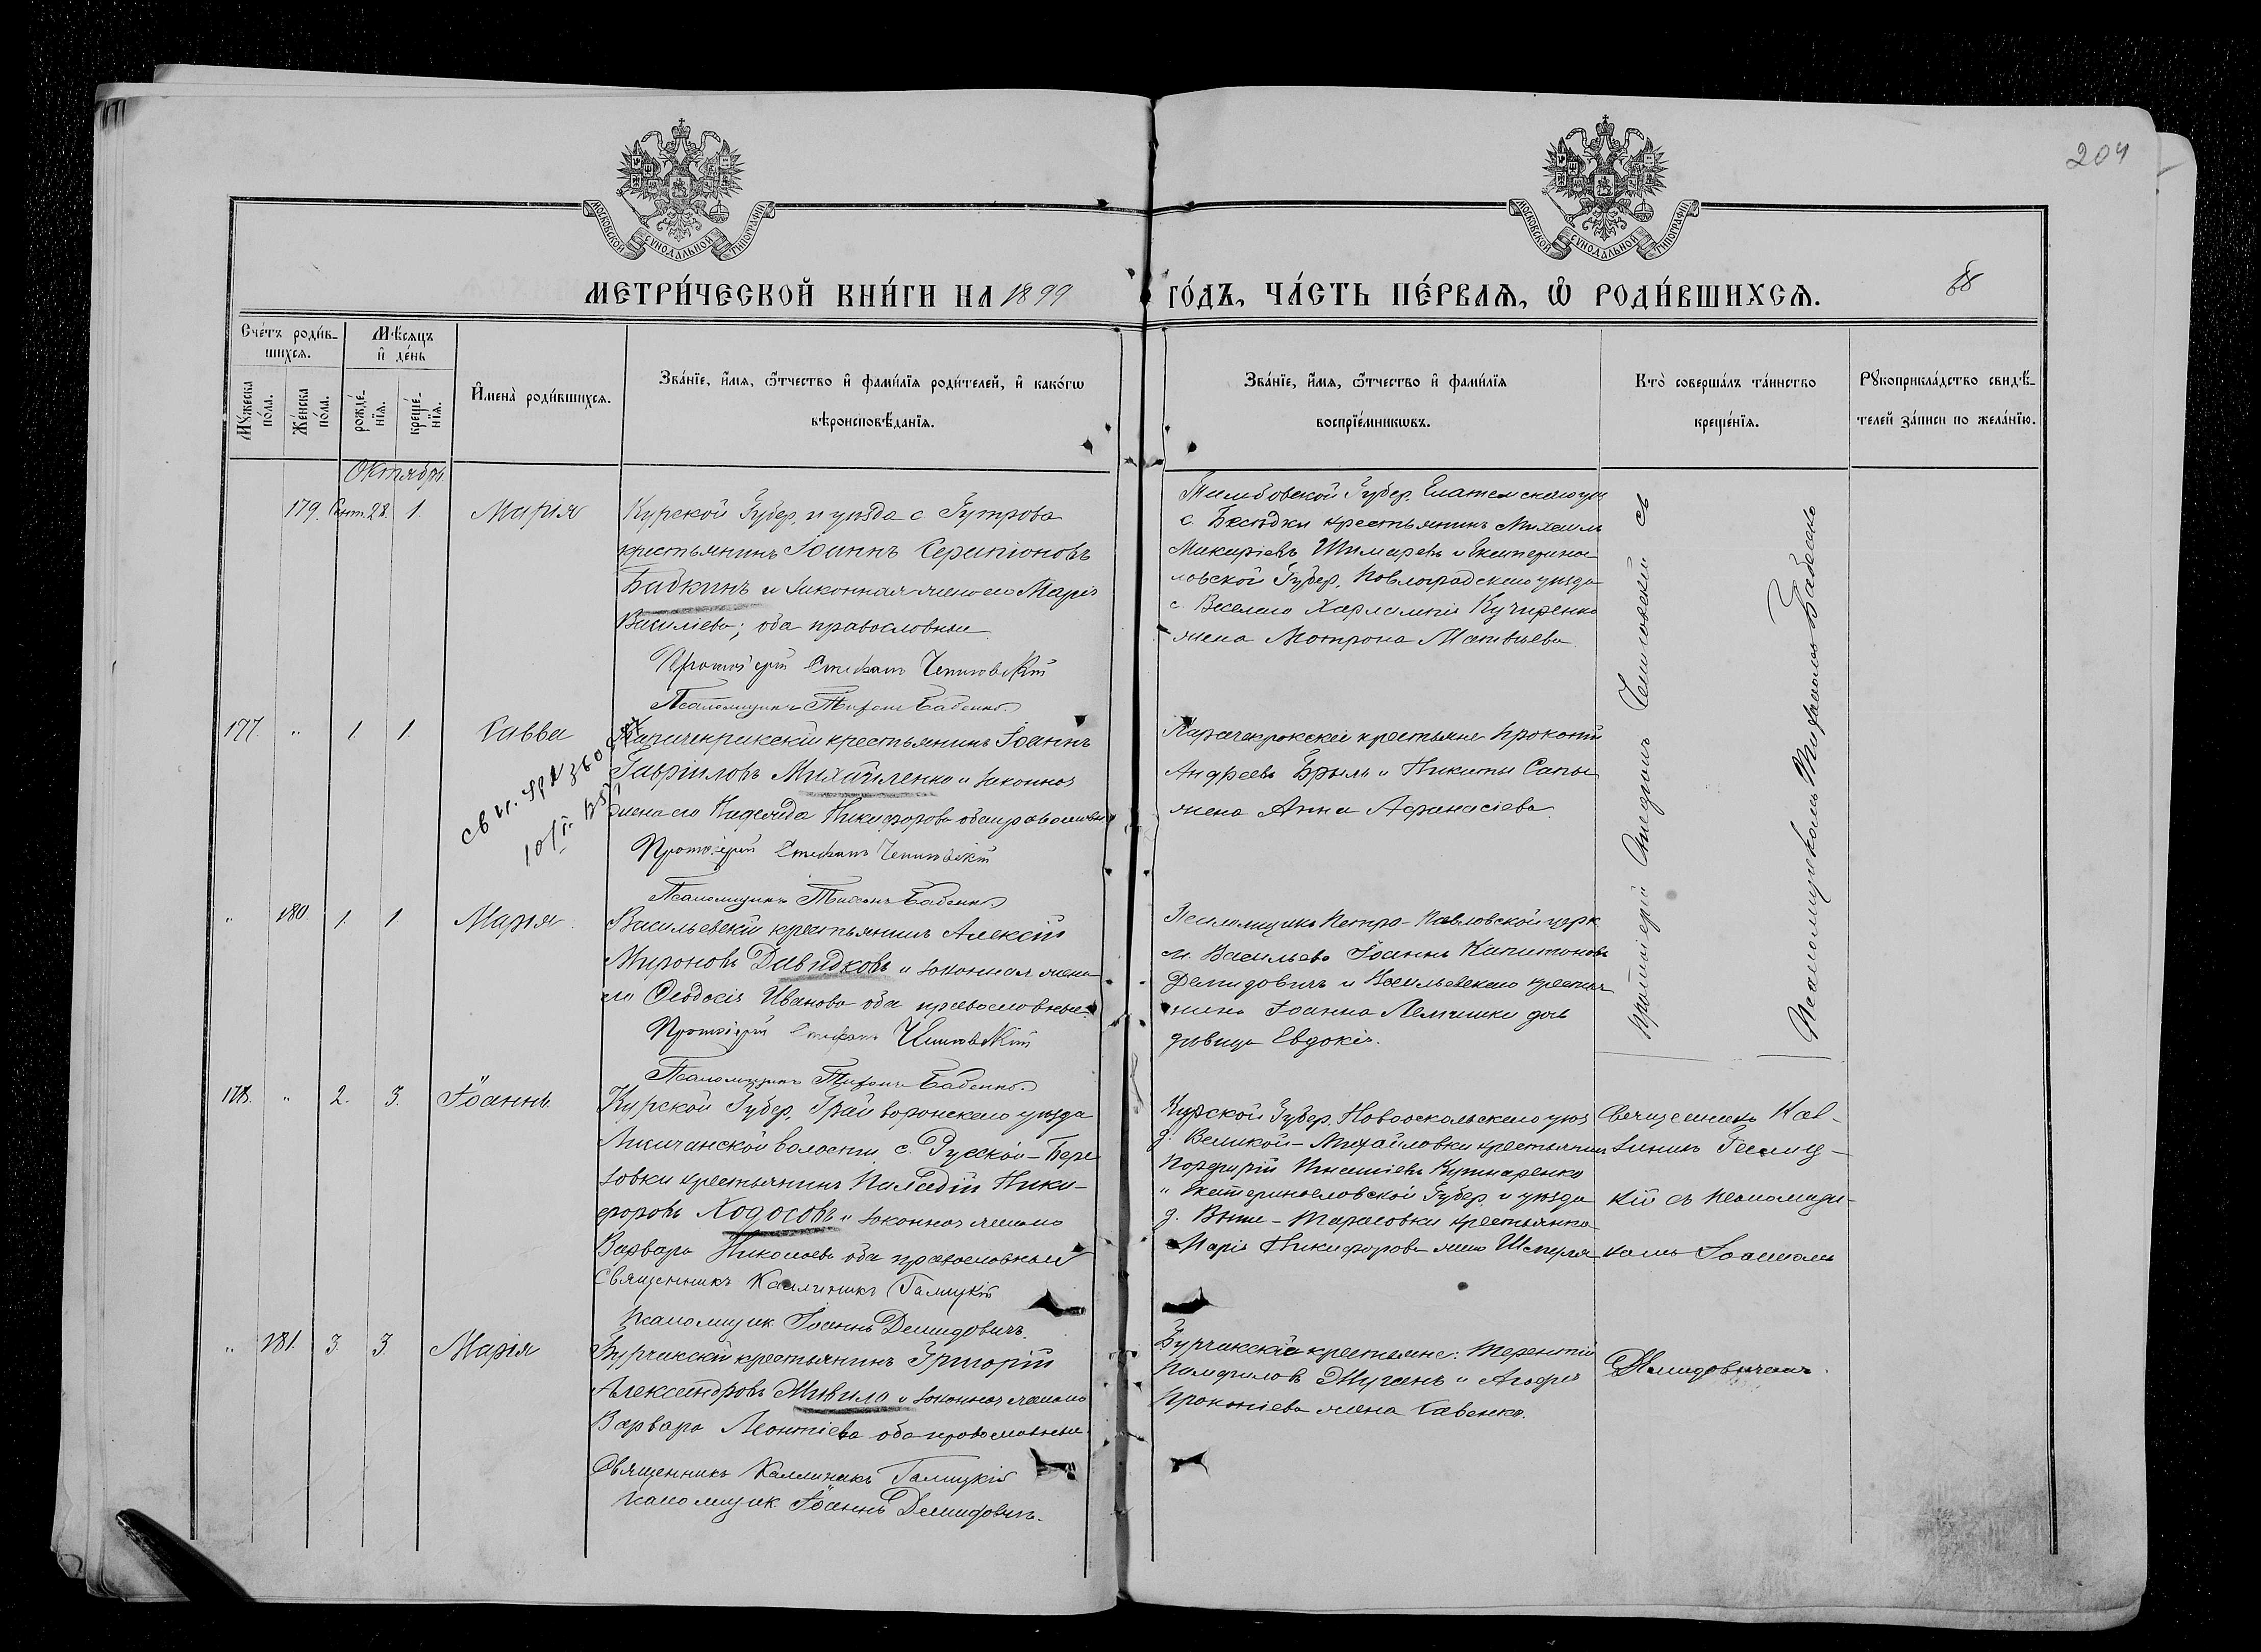 204
МОСКОВСКОЙ СѴНОДАЛЬНОЙ ТИПОГРАФІИ
МОСКОВСКОЙ СѴНОДАЛЬНОЙ ТИПОГРАФІИ
МЕТРИ́ЧЕСКОЙ КНИ́ГИ НА 1899
ГО́ДЪ, ЧА́СТЬ ПЕ́РВАЯ, Ѿ РОДИ́ВШИХСЯ.
88
Сче́тъ роди́в-
шихся.
Му́жеска по́ла.
Же́нска по́ла.
Мѣ́сяцъ
и҆ де́нь
рожде́-
нїя.
креще́-
нїя.
И҆мена̀ роди́вшихся.
Зва́нїе, и҆́мя, ѻ҆́тчество и҆ фами́лїя роди́телей, и҆ како́гѡ
вѣроисповѣ́данїя.
Зва́нїе, и҆́мя, ѻ҆́тчество и҆ фами́лїя
воспрїе́мникѡвъ.
Кто̀ соверша́лъ та́инство
креще́нїя.
Рꙋкоприкла́дство свидѣ́-
телей за́писи по жела́нїю.
Октябрь
179. Сент. 28. 1. Марія
Курской Губер. и уѣзда с. Гутрова
крестьянинъ Іоаннъ Серапіоновъ
Бабкинъ и законная жена его Марія
Василіева; оба православные
Протоіерей Стефанъ
Псаломщикъ Тифонъ Бабенко
Тамбовской Губер. Елатомскаго уѣз
с. Бесѣдки крестьянинъ Михаилъ
Макаріевъ Шимаревъ и Екатерино-
словской Губер. Павлоградскаго уѣзда
с. Веселаго Харлампія Кучиренко
жена Мотрона Матвѣева
Протоіерей Стефанъ съ
Псаломщикомъ Бабенко
177. " 1 1. Савва
св и.
Карачекракскій крестьянинъ Іоаннъ
Гавріиловъ Михайленко и законная
жена его Надежда Никифорова оба православные
Протоіерей Стефанъ
Псаломщикъ Тифонъ Бабенко
Карачекракскіе крестьяне Прокопій
Андреевъ Брыль и Никиты Сапы
жена Анна Афанасіева
" 180. 1. 1 Марія
Васильевскій крестьянинъ Алексій
Мироновъ Давидковъ и законная жена
его Феодосія Иванова оба православные
Протоіерей Стефанъ
Псаломщикъ Тифонъ Бабенко
Псаломщикъ Петро-Павловской церк
м. Васильева Іоаннъ Капитоновъ
Демидовичъ и Васильевскаго крестья-
нина Іоанна Лемишки дочь
дѣвица Евдокія.
178. " 2. 3. Іоаннъ
Курской Губер. Грайворонскаго уѣзда
волости с. Русской-Бере
зовки крестьянинъ Палладій Ники-
форовъ Ходосовъ и законная жена его
Варвара Николаева оба православные
Священникъ Каллиникъ Галицкій
Псаломщик Іоаннъ Демидовичъ.
Курской Губер. Новооскольскаго уѣз
д. Великой-Михайловки крестьянинъ
Порфирій Кушнаренко
и Екатеринославской Губер. и уѣзда
д. Выше-Тарасовки крестьянка
Марія Никифорова жена
Священникъ Кал-
линикъ Галиц-
кій съ псаломщи-
комъ Іоанномъ
" 181. 3. 3. Марія
Бурчакскій крестьянинъ Григорій
Александровъ Живило и законная жена его
Варвара Леонтіева оба православные
Священникъ Каллиникъ Галицкій
Псаломщик Іоаннъ Демидовичъ.
Бурчакскіе крестьяне: Терентій
Памфиловъ Жугань и Агафія
Прокопіева жена Савенко.
Демидовичемъ.